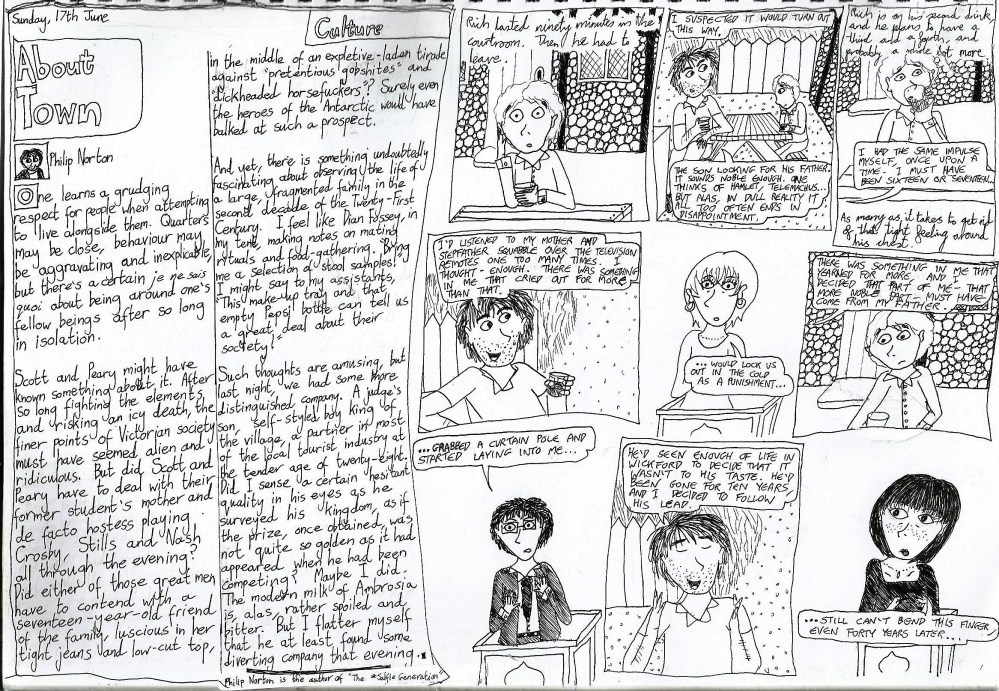 Sunday, 17th June
Culture
About
Town
Philip Norton
One learns a grudging
respect for people when attempting
to live alongside them. Quarters
may be close, behaviour may
be aggravating and inexplicable,
but there's a certain je ne sais
quoi about being around one's
fellow beings after so long
in isolation.
Scott and Peary might have
known something about it. After
so long fighting the elements
and risking an icy death, the
finer points of Victorian society
must have seemed alien and
ridiculous. But did Scott and
Peary have to deal with their
former student's mother and
de facto hostess playing
Crosby, Stills and Nash
all through the evening?
Did either of those great men
have to contend with a
seventeen-year-old friend
of the family, luscious in her
tight jeans and low-cut top,
in the middle of an expletive-laden tirade
against "pretentious gobshites" and
"dickheaded horsefuckers"? Surely even
the heroes of the Antarctic would have
balked at such a prospect.
And yet, there is something undoubtedly
fascinating about observing the life of
a large, fragmented family in the
second decade of the Twenty-First
Century. I feel like Dian Fossey, in
my tent, making notes on mating
rituals and food-gathering. "Bring
me a selection of stool samples!"
I might say to my assistants,
"This make-up tray and that
empty Pepsi bottle can tell us
a great deal about their
society!"
Such thoughts are amusing, but
last night, we had some more
distinguished company. A judge's
son, self-styled boy king of
the village, a partner in most
of the local tourist industry at
the tender age of twenty-eight.
Did I sense a certain hesitant
quality in his eyes as he
surveyed his kingdom, as if
the prize, once obtained, was
not quite so golden as it had
appeared when he had been
competing? Maybe I did.
The modern milk of Ambrosia
is, alas, rather spoiled and
bitter. But I flatter myself
that he at least found some
diverting company that evening.
Philip Norton is the author of "The #Selfie Generation"
Rich lasted ninety minutes in the
courtroom. Then he had to
leave.
I SUSPECTED IT WOULD TURN OUT
THIS WAY.
THE SON LOOKING FOR HIS FATHER.
IT SOUNDS NOBLE ENOUGH. ONE
THINKS OF HAMLET, TELEMACHUS...
BUT ALAS, IN DULL REALITY IT
ALL TOO OFTEN ENDS IN
DISAPPOINTMENT.
Rich is on his second drink,
and he plans to have a
third and a fourth, and
probably a whole lot more.
I HAD THE SAME IMPULSE
MYSELF, ONCE UPON A
TIME. I MUST HAVE
BEEN SIXTEEN OR SEVENTEEN...
As many as it takes to get rid
of that tight feeling around
his chest.
I'D LISTENED TO MY MOTHER AND
STEPFATHER SQUABBLE OVER THE TELEVISION
REMOTES ONE TOO MANY TIMES. I
THOUGHT - ENOUGH. THERE WAS SOMETHING
IN ME THAT CRIED OUT FOR MORE
THAN THAT.
...WOULD LOCK US
OUT IN THE COLD
AS A PUNISHMENT...
THERE WAS SOMETHING IN ME THAT
YEARNED FOR MORE, AND I
DECIDED THAT PART OF ME - THAT
MORE NOBLE PART - MUST HAVE
COME FROM MY FATHER.
...GRABBED A CURTAIN POLE AND
STARTED LAYING INTO ME...
HE'D SEEN ENOUGH OF LIFE IN
WICKFORD TO DECIDE THAT IT
WASN'T TO HIS TASTE. HE'D
BEEN GONE FOR TEN YEARS,
AND I DECIDED TO FOLLOW
HIS LEAD.
...STILL CAN'T BEND THIS FINGER
EVEN FORTY YEARS LATER...